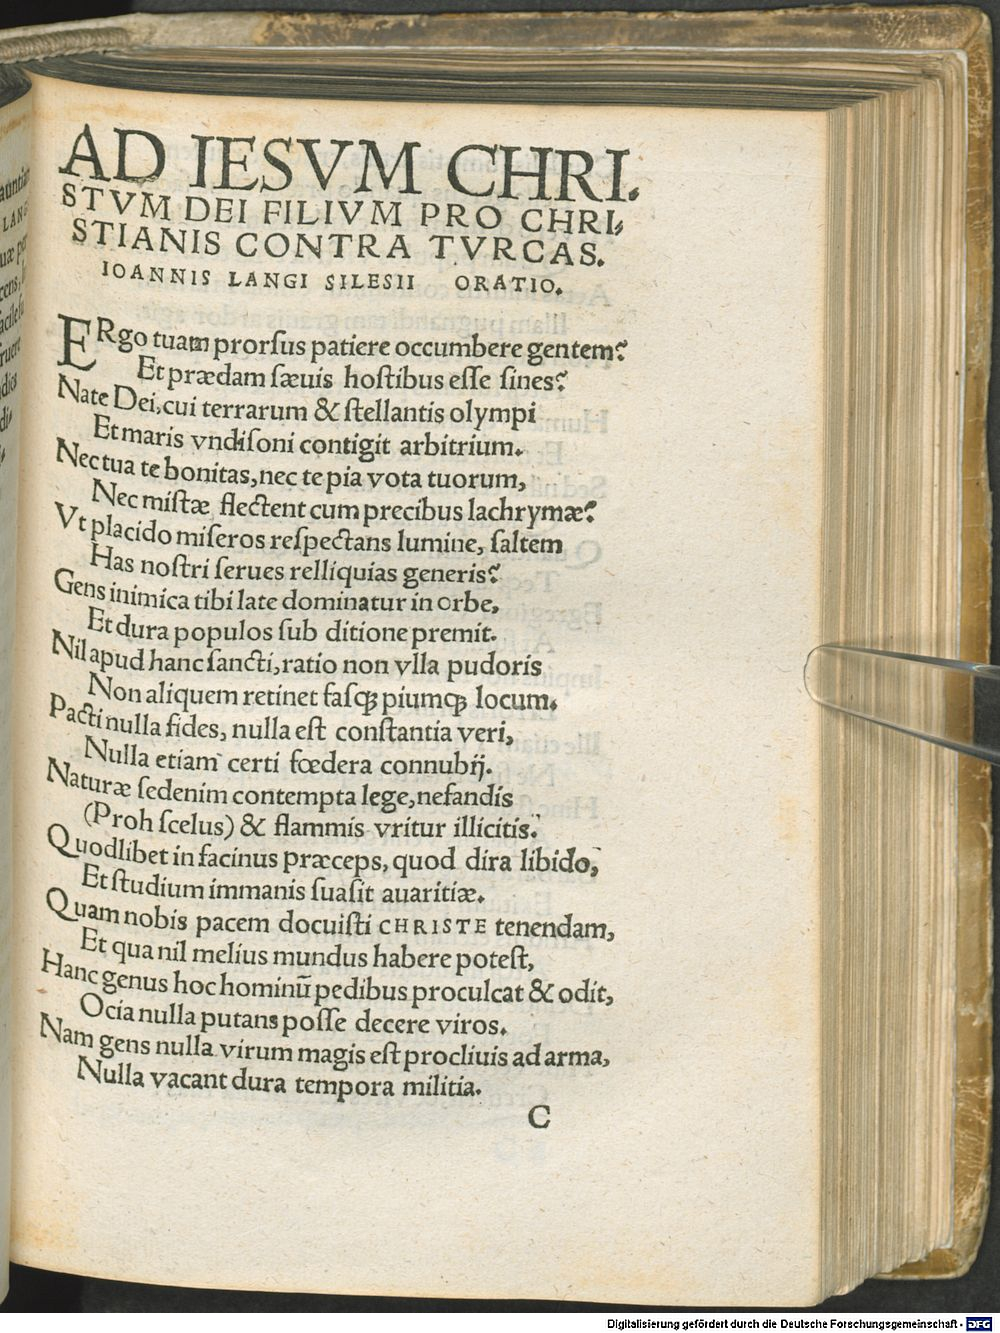 AD IESVM CHRI.
STVM DEI FILIVM PRO CHRI,
STIANIS CONTRA TVRCAS.
IOANNIS LANGI SILESII ORATIO.
ERgo tuam prorſus patiere occumbere gentem?
Et prædam ſæuis hoſtibus eſſe ſines?
Nate Dei, cui terrarum & ſtellantis olympi
Et maris vndiſoni contigit arbitrium.
Nec tua te bonitas, nec te pia vota tuorum,
Nec miſtæ flectent cum precibus lachrymæ?
Vt placido miſeros reſpectans lumine, ſaltem
Has noſtri ſerues relliquias generis?
Gens inimica tibi late dominatur in orbe,
Et dura populos ſub ditione premit.
Nil apud hanc ſancti, ratio non vlla pudoris
Non aliquem retinet faſq; piumq; locum.
Pacti nulla fides, nulla eſt conſtantia veri,
Nulla etiam certi fœdera connubij.
Naturæ ſedenim contempta lege, nefandis
(Proh ſcelus) & flammis vritur illicitis.
Quodlibet in facinus præceps, quod dira libido,
Et ſtudium immanis ſuaſit auaritiæ.
Quam nobis pacem docuiſti CHRISTE tenendam,
Et qua nil melius mundus habere poteſt,
Hanc genus hoc hominū pedibus proculcat & odit,
Ocia nulla putans poſſe decere viros.
Nam gens nulla virum magis eſt procliuis ad arma,
Nulla vacant dura tempora militia.
C
Digitalisierung gefördert durch die Deutsche Forschungsgemeinschaft - DFG